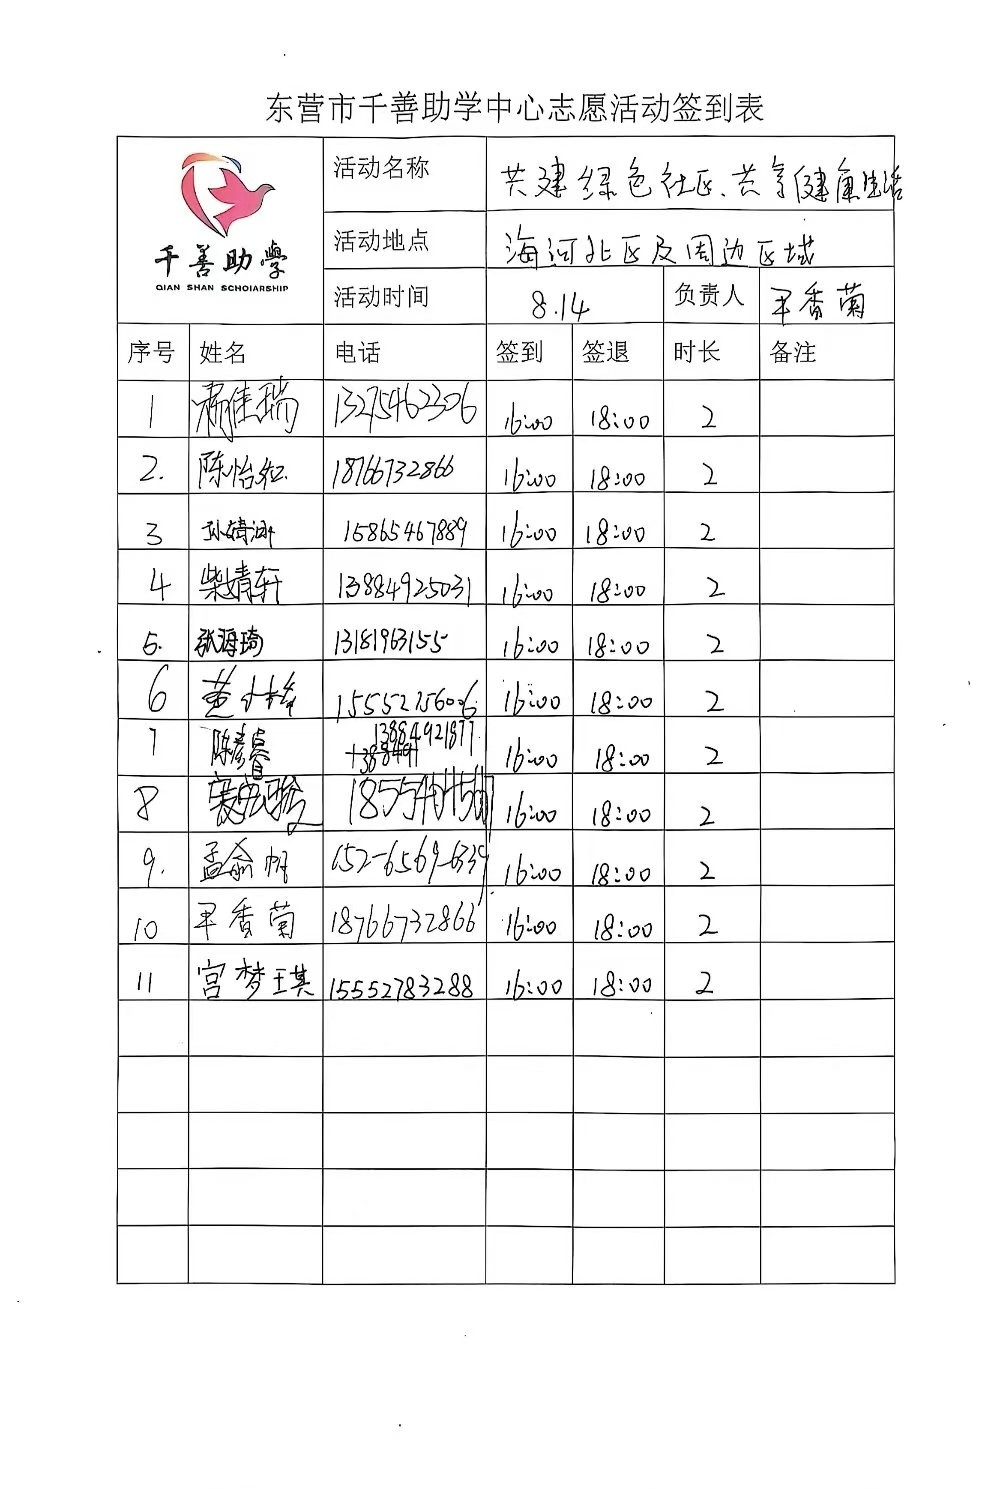 东营市千善助学中心志愿活动签到表
千善助學
QIAN SHAN SCHOIARSHIP
活动名称 共建绿色社区、共享健康生活
活动地点 海河北区及周边区域
活动时间 8.14 负责人 香菊
序号 姓名 电话 签到 签退 时长 备注
1 佳瑞 13275462306 16:00 18:00 2
2. 陈怡红 18766732866 16:00 18:00 2
3 孙婧涵 15865467889 16:00 18:00 2
4 柴婧轩 13884925031 16:00 18:00 2
5. 张海琦 13181963155 16:00 18:00 2
6 董 15552756006 16:00 18:00 2
7 陈彦睿 13884921877 16:00 18:00 2
8 16:00 18:00 2
9. 孟俞帆 152-6569-6339 16:00 18:00 2
10 香菊 18766732866 16:00 18:00 2
11 宫梦琪 15552783288 16:00 18:00 2